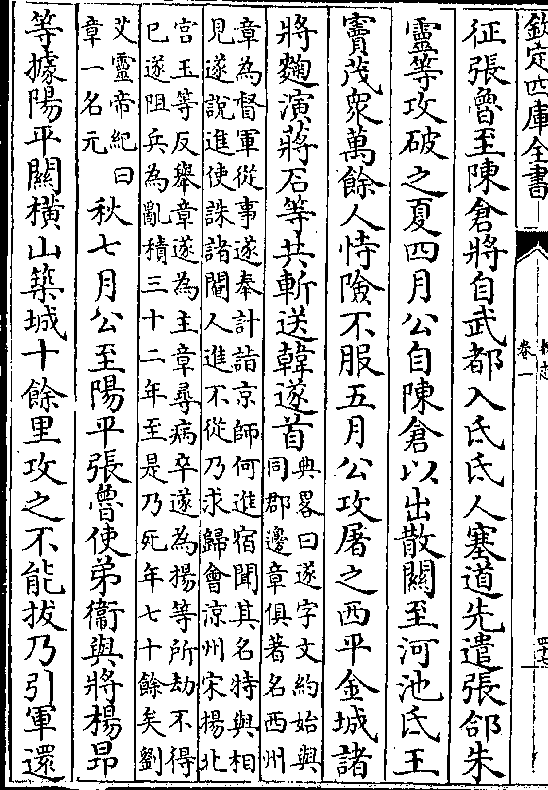 欽定四庫全書
卷一
征張魯至陳倉將自武都入氐氐人塞道先遣張郃朱
靈等攻破之夏四月公自陳倉以出散關至河池氐王
竇茂衆萬餘人恃險不服五月公攻屠之西平金城諸
將麴演蔣石等共斬送韓遂首
典畧曰遂字文約始與
同郡邊章俱著名西州
章為督軍從事遂奉計詣京師何進宿聞其名特與相
見遂說進使誅諸閹人進不從乃求歸會涼州宋楊北
宫玉等反舉章遂為主章尋病卒遂為揚等所劫不得
已遂阻兵為亂積三十二年至是乃死年七十餘矣劉
艾靈帝紀曰
章一名元
秋七月公至陽平張魯使弟衞與將楊昂
等據陽平關橫山築城十餘里攻之不能拔乃引軍還